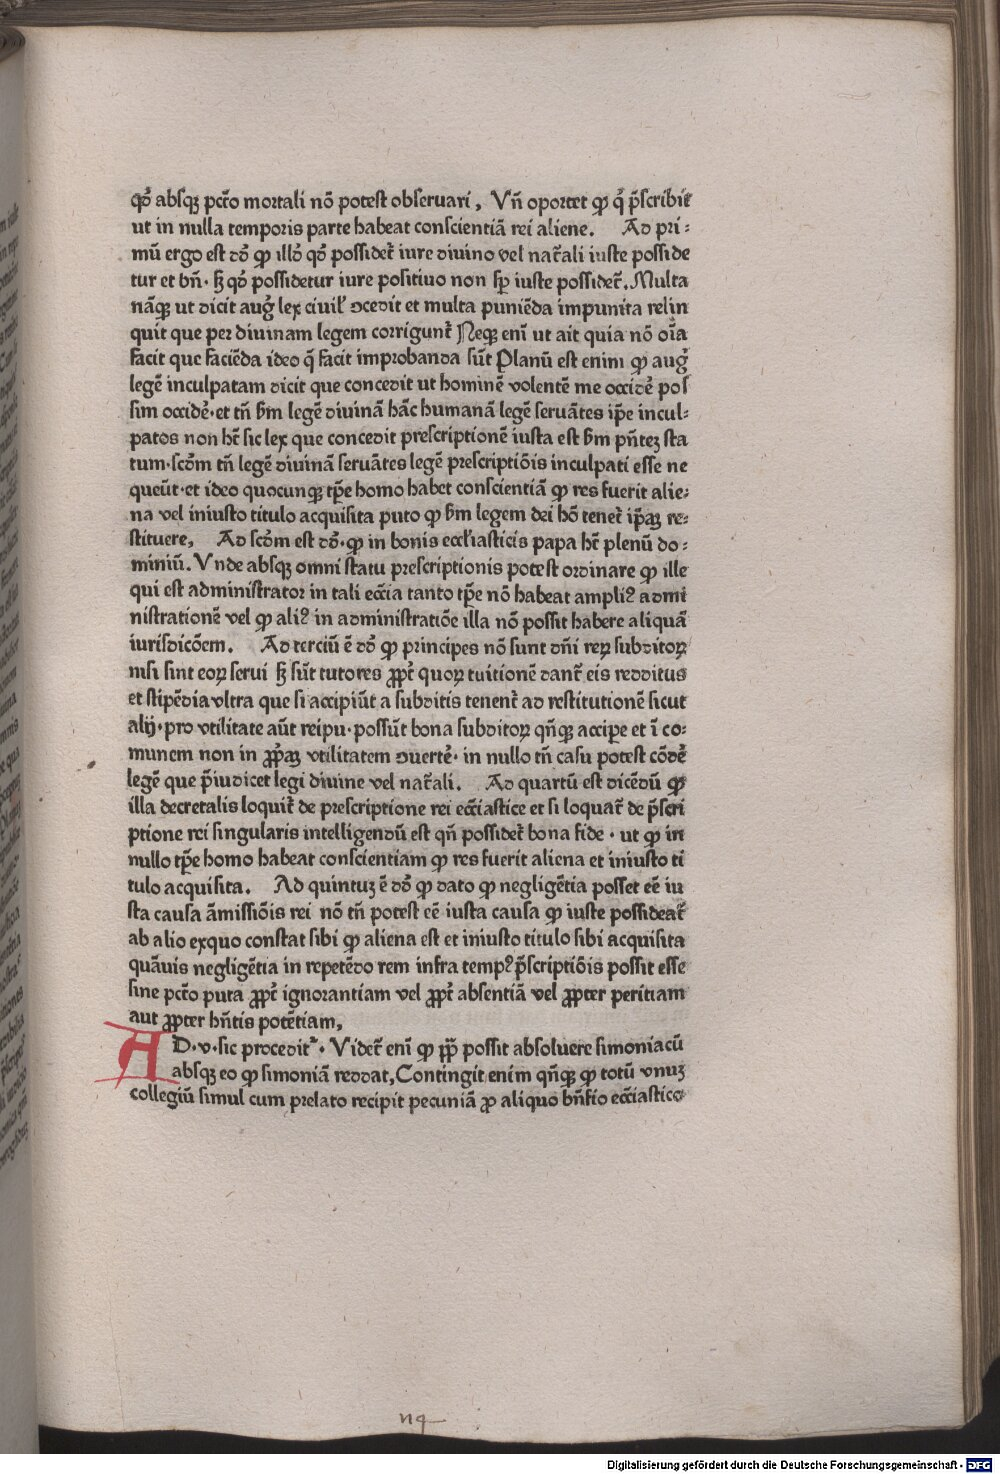 qđ absqꝫ pctō mortali nō potest obseruari, Vñ oportet ꝙ q̄ p̄scribit
ut in nulla temporis parte habeat conscientiā rei aliene. Ad pri-
mū ergo est dō ꝙ illđ qđ possidet̄ iure diuino vel nat̄ali iuste posside
tur et bñ· sꝫ qđ possidetur iure positiuo non sp̄ iuste possidet̄. Multa
nāqꝫ ut dicit augꝰ lex ciuil̕ ɔcedit et multa puniēda impunita relin
quit que per diuinam legem corrigunt̄ Neqꝫ enī ut ait quia nō oīa
facit que faciēda ideo q̄ facit improbanda sūt Planū est enim ꝙ augꝰ
legē inculpatam dicit que concedit ut hominē volentē me occidē pos
sim occidē· et tñ ẜm legē diuinā hāc humanā legē seruātes ip̄e incul-
patos non hēt sic lex que concedit prescriptionē iusta est ẜm pñteꝫ sta
tum· scđm tñ legē diuinā seruātes legē prescriptiōis inculpati esse ne
queūt· et ideo quocunqꝫ tp̄e homo habet conscientiā ꝙ res fuerit alie-
na vel iniusto titulo acquisita puto ꝙ ẜm legem dei hō tenet̄ ip̄aꝫ re-
stituere, Ad scđm est dō· ꝙ in bonis eccl̕iasticis papa hēt plenū do-
miniū. Vnde absqꝫ omni statu prescriptionis potest ordinare ꝙ ille
qui est administrator in tali ecc̄ia tanto tp̄e nō habeat ampliꝰ admi
nistrationē vel ꝙ aliꝰ in administratiōe illa nō possit habere aliquā
iurisdicōem. Ad terciū ē dō ꝙ principes nō sunt dñi reꝝ subditoꝝ
nisi sint eoꝝ serui sꝫ sūt tutores ꝓpt̄ quoꝝ tuitionē dant̄ eis redditus
et stipēdia vltra que si accipiūt a subditis tenent̄ ad restitutionē sicut
alij· pro vtilitate aūt reipu· possūt bona subditoꝝ qñqꝫ accipe et ī co-
munem non in ꝓp̄aꝫ vtilitatem ɔuertē· in nullo tñ casu potest cōdē
legē que p̄iudicet legi diuine vel nat̄ali. Ad quartū est dicēdū ꝙ
illa decretalis loquit̄ de prescriptione rei ecc̄iastice et si loquat̄ de p̄scri
ptione rei singularis intelligendū est qñ possidet̄ bona fide · ut ꝙ in
nullo tp̄e homo habeat conscientiam ꝙ res fuerit aliena et iniusto ti
tulo acquisita. Ad quintuꝫ ē dō ꝙ dato ꝙ negligētia posset eē iu
sta causa āmissiōis rei nō tñ potest eē iusta causa ꝙ iuste possideat̄
ab alio exquo constat sibi ꝙ aliena est et iniusto titulo sibi acquisita
quāuis negligētia in repetēdo rem infra tempꝰ p̄scriptiōis possit esse
sine pctō puta ꝓpt̄ ignorantiam vel ꝓpt̄ absentiā vel ꝓpter peritiam
aut ꝓpter hñtis potētiam,
AD·v·sic procedit̄· Videt̄ enī ꝙ pp̄ possit absoluere simoniacū
absqꝫ eo ꝙ simoniā reddat, Contingit enim qñqꝫ ꝙ totū vnuꝫ
collegiū simul cum prelato recipit pecuniā ꝓ aliquo bñfio ecc̄iastico
Digitalisierung gefördert durch die Deutsche Forschungsgemeinschaft - DFG